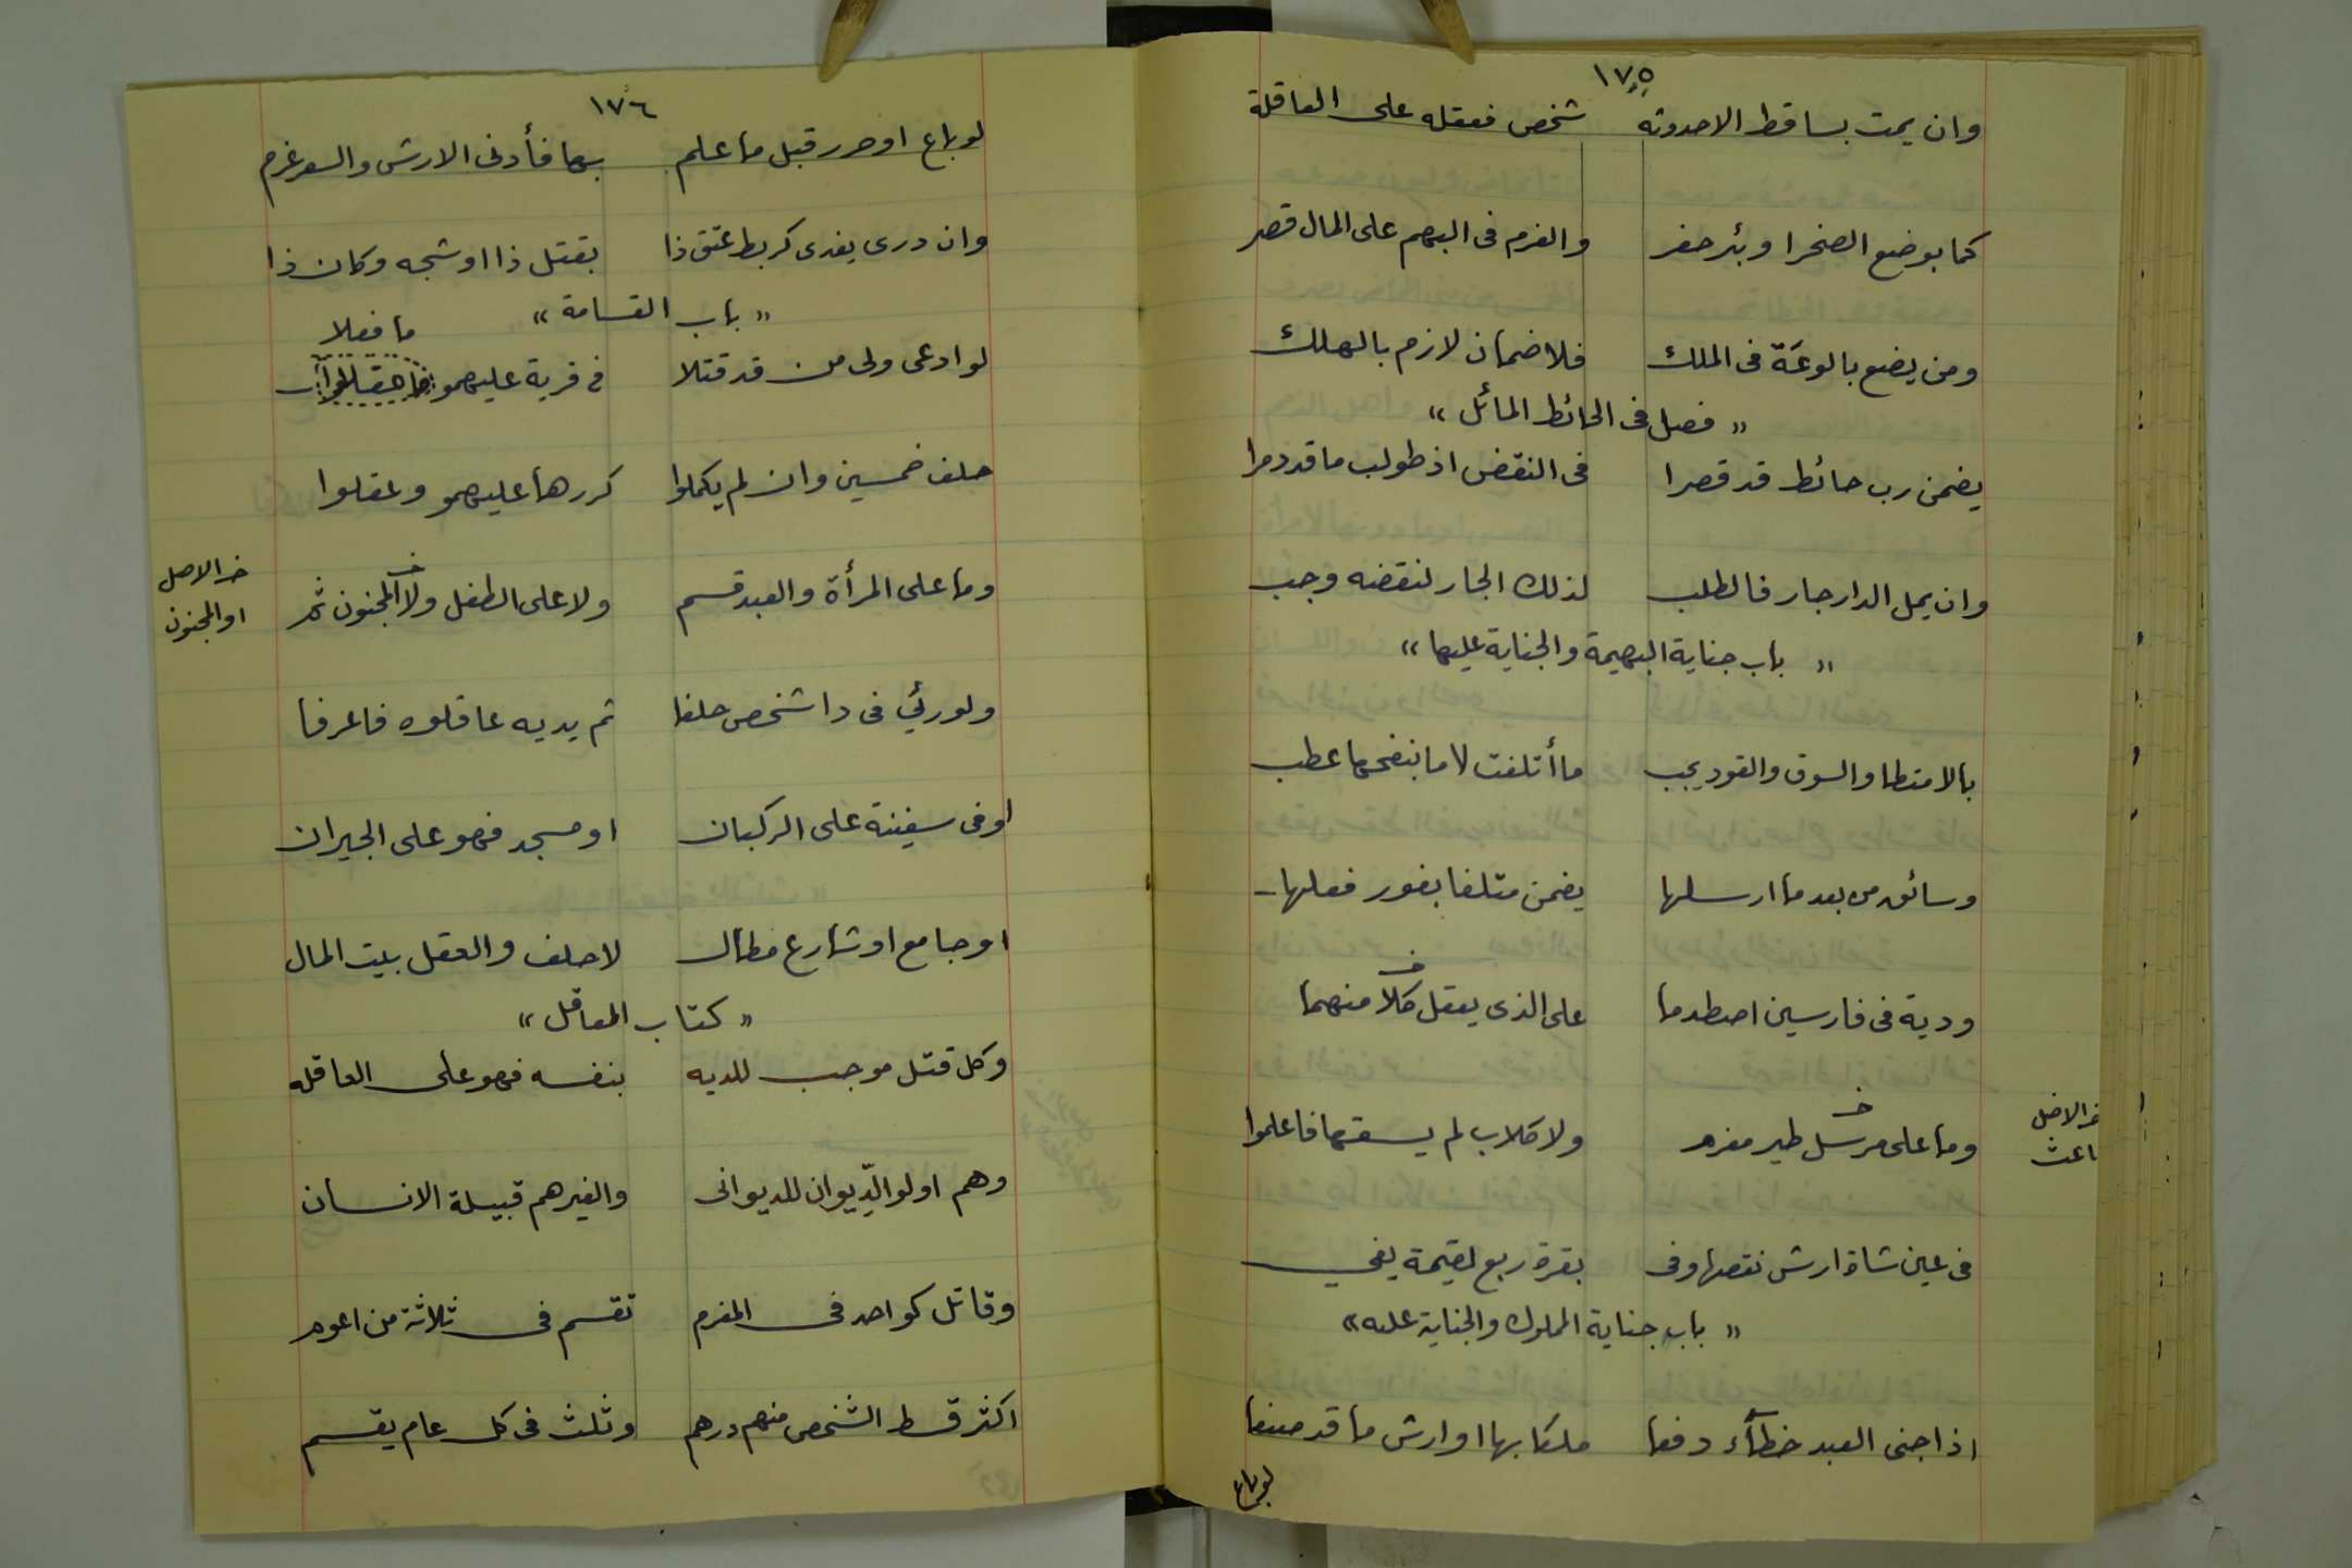 ١٧٥
وان يمت بساقط الاحدوثه شخص فعقله على العاقلة
كما بوضع الصخر او بئر حفر والغرم فى البهم على المال قصر
ومن يضع بالوعة فى الملك فلا ضمان لازم بالهلك
« فصل فى الحائط المائل »
يضمن رب حائط قد قصرا فى النقض اذ طولب ما قد دمرا
وان يمل الدار جار فالطلب لذلك الجار لنقضه وجب
« باب جناية البهيمة والجناية عليها »
بالامتطا والسوق والقود يجب ما أتلفت لا ما بنفحها عطب
وسائق من بعد ما ارسلها يضمن متلفا بفور فعلها
ودية فى فارسين اصطدما على الذى يعقل كلا منهما
وما على مرسل طير مغرم ولا كلاب لم يسقها فاعلموا
خ الاصل
باعث
فى عين شاة ارش نقصها وفى بقرة ربع لقيمة يفي
« باب جناية المملوك والجناية عليه »
اذا جنى العبد خطآء دفعا ملكا بها او ارش ما قد صنعا
لو باع
١٧٦
لو باع او حرر قبل ما علم بها فأدنى الارش والسعر غرم
وان درى يفدى كربط عتق ذا بقتل ذا او شجه وكان ذا
« باب القسامة »
ما فعلا
لو ادعى ولى من قد قتلا فى قرية عليهمو
حلف خمسين وان لم يكملوا كررها عليهمو وعقلوا
وما على المرأة والعبد قسم ولا على الطفل ولا المجنون ثم
خ الاصل
او المجنون
ولو رئي فى دا شخص حلفا ثم يديه عاقلوه فاعرفا
او فى سفينة على الركبان او مسجد فهو على الجيران
او جامع او شارع فطال لا حلف والعقل ببيت المال
« كتاب المعاقل »
وكل قتل موجب للديه بنفسه فهو على العاقله
وهم اولو الدّيوان للديوانى والغير هم قبيلة الانسان
وقاتل كواحد فى المغرم تقسم فى ثلاثة من اعوم
اكثر قسط الشخص منهم درهم وثلث فى كل عام يقسم